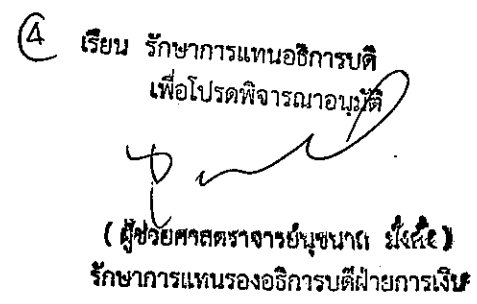 4 เรียน รักษาการแทนอธิการบดี
เพื่อโปรดพิจารณาอนุมัติ
(ผู้ช่วยศาสตราจารย์นุชนาถ มั่งคั่ง)
รักษาการแทนรองอธิการบดีฝ่ายการเงิน